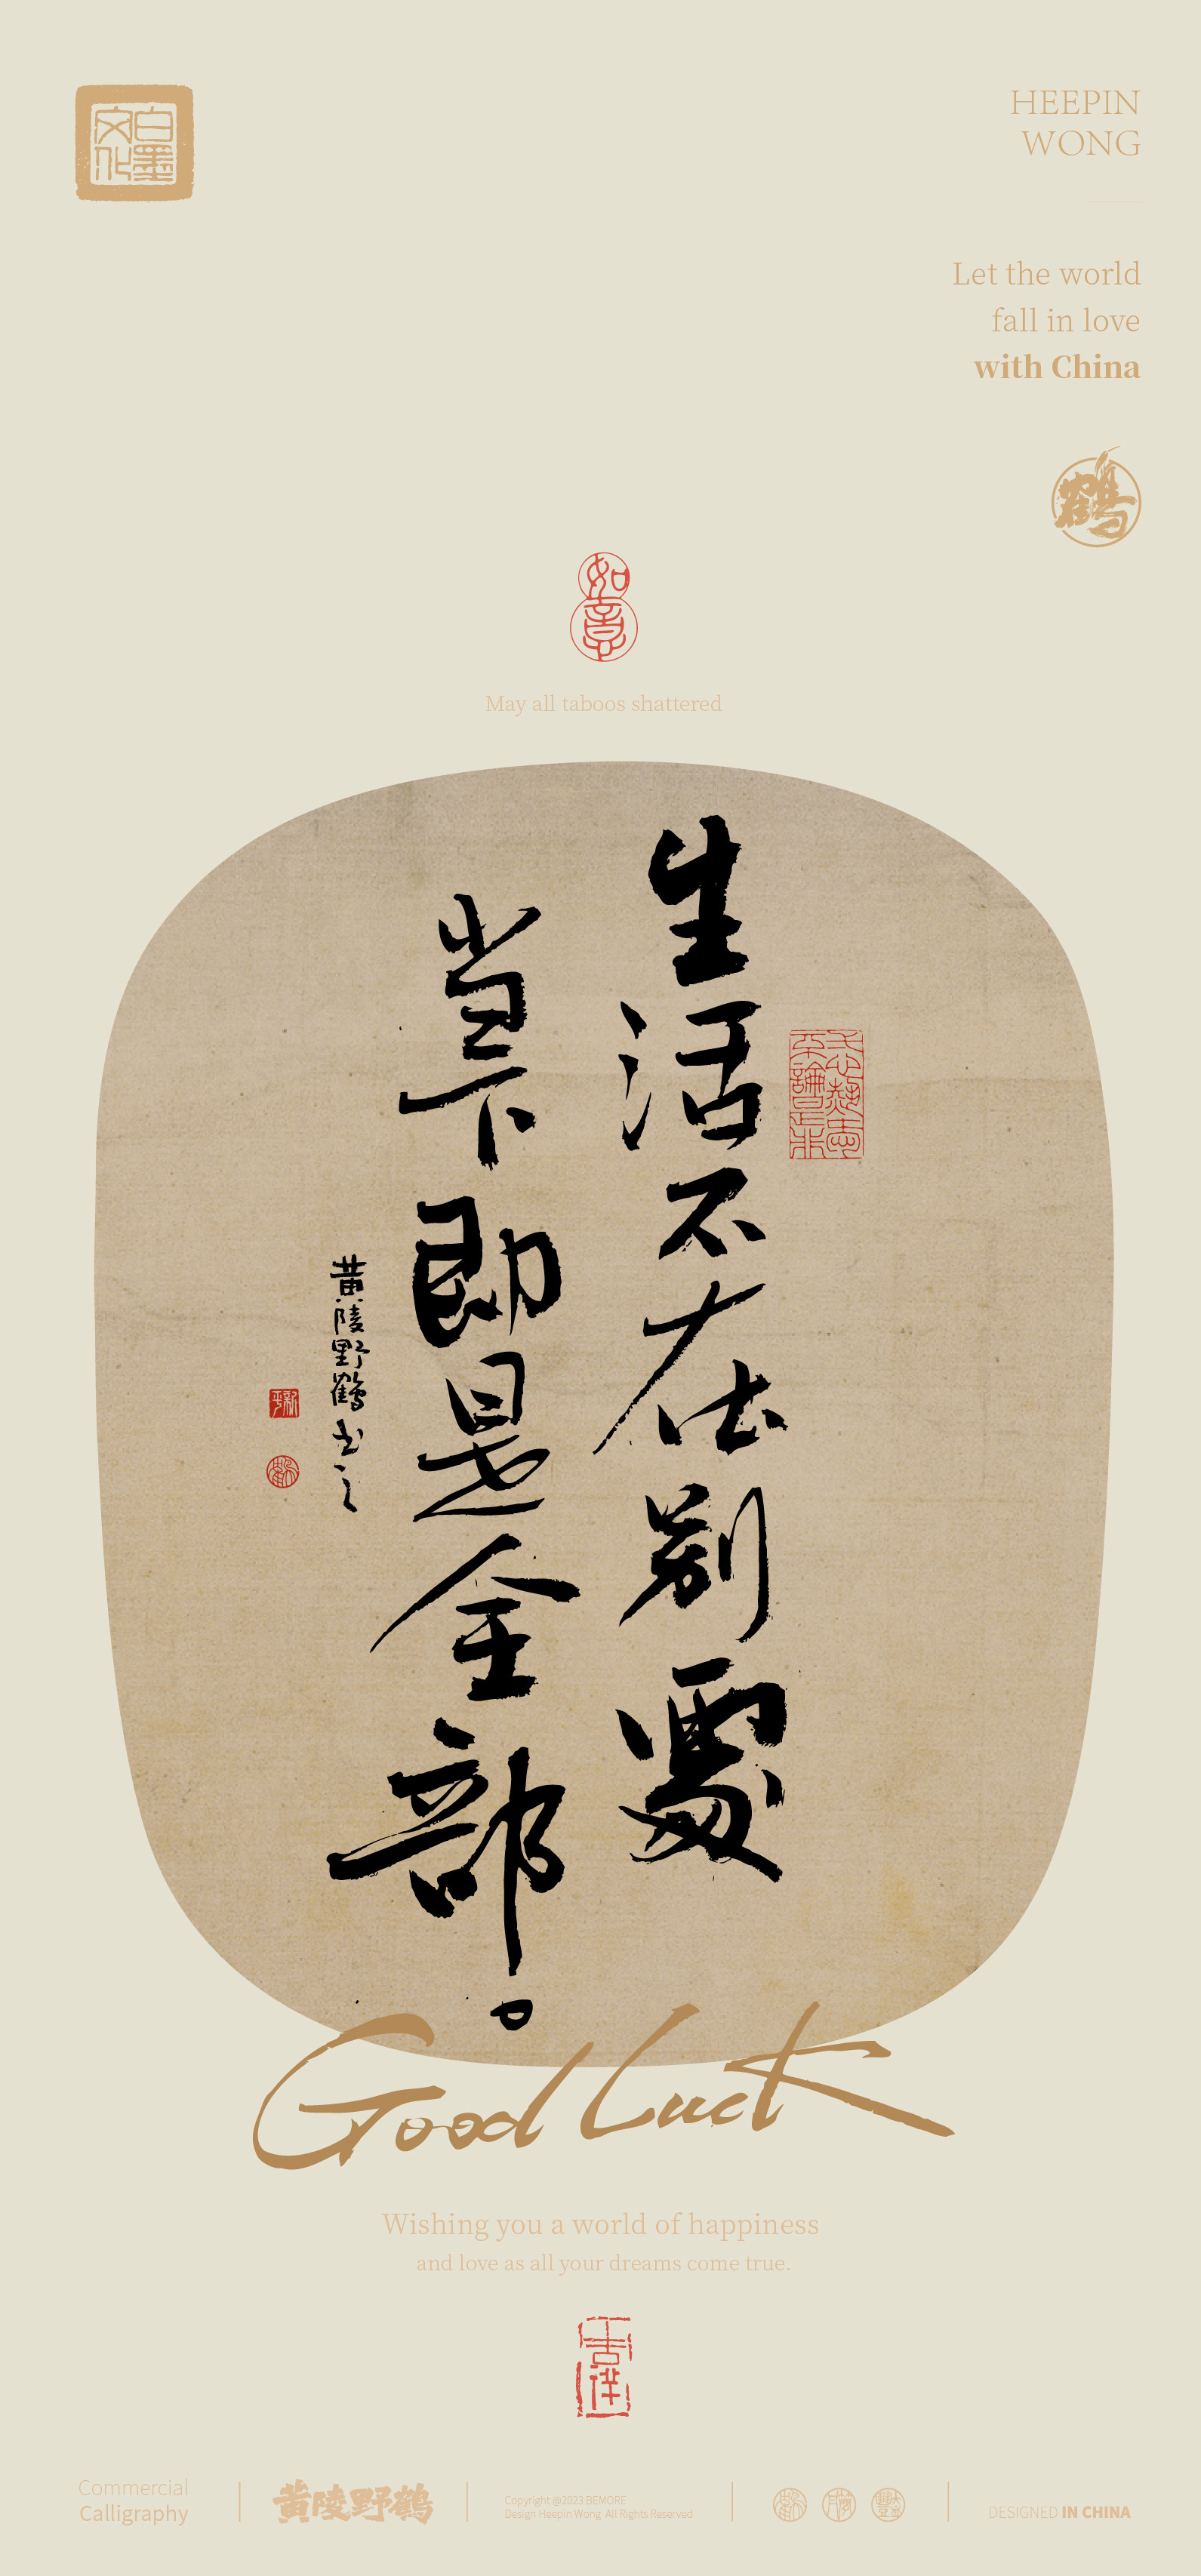 白墨
文化
HEEPIN
WONG
Let the world
fall in love
with China
鶴
如意
May all taboos shattered
生活不在别處
当下即是全部。
黄陵野鶴书之
Good Luck
Wishing you a world of happiness
and love as all your dreams come true.
吉祥
Commercial
Calligraphy
黄陵野鹤
Copyright @2023 BEMORE
Design Heepin Wong All Rights Reserved
DESIGNED IN CHINA